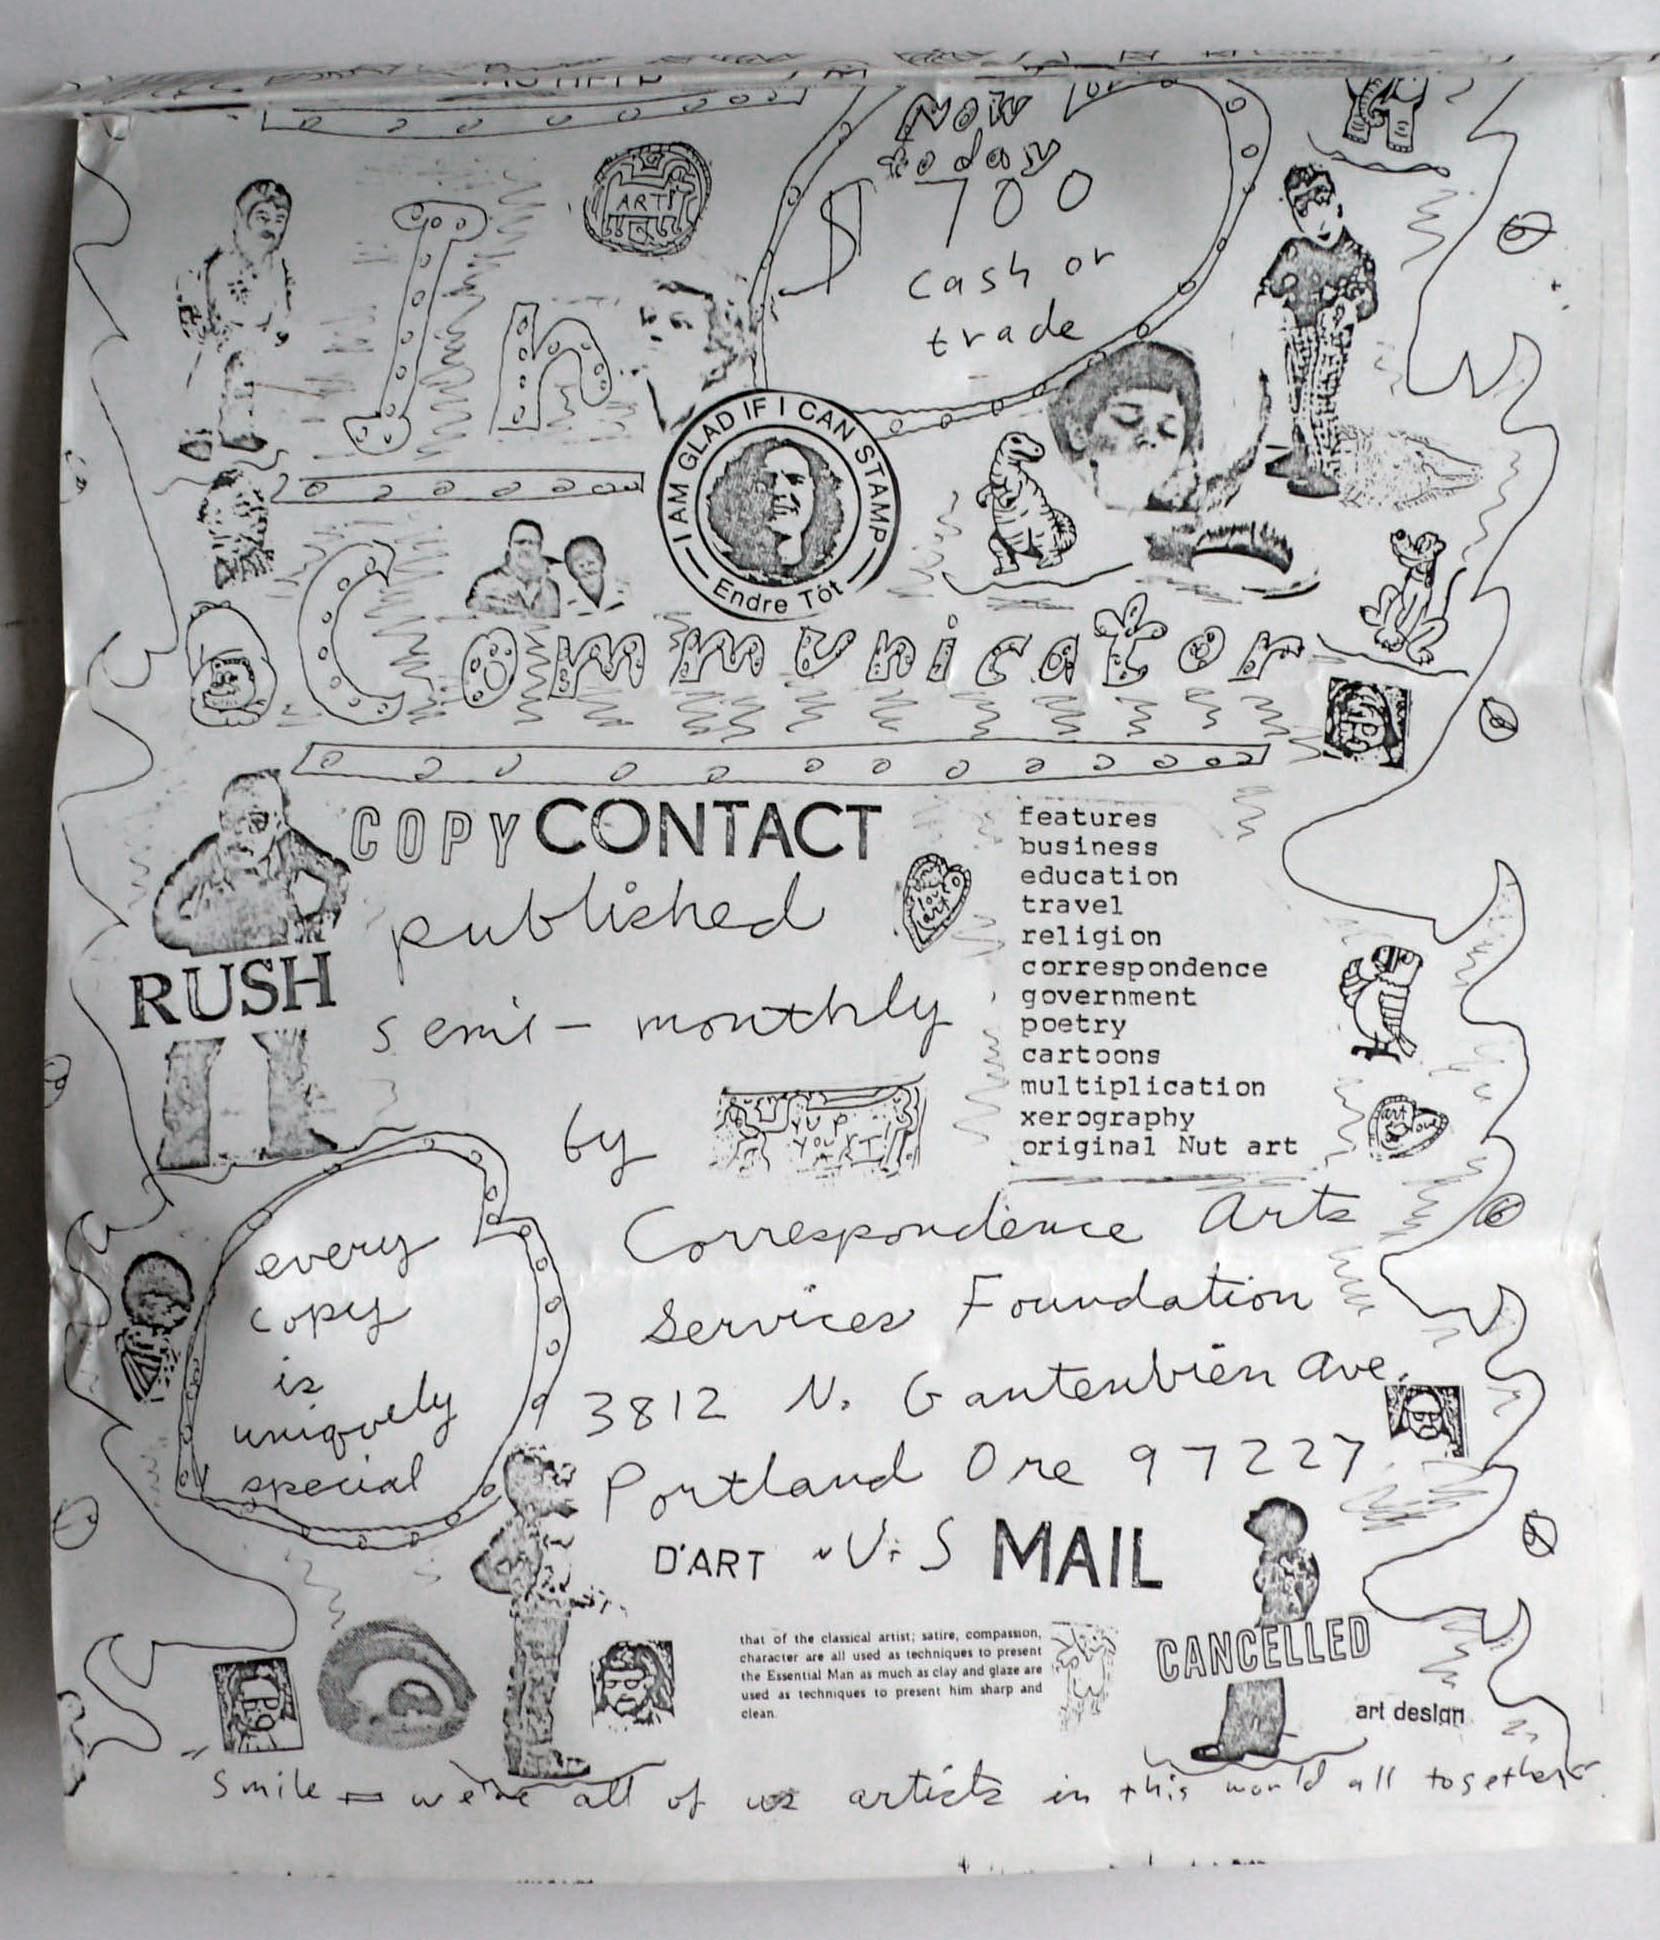 Now
today
$700
cash or
trade
ART
In
I AM GLAD IF I CAN STAMP
Endre Tót
Communicator
COPY CONTACT
published
semi-monthly
by
RUSH
love
art
features
business
education
travel
religion
correspondence
government
poetry
cartoons
multiplication
xerography
original Nut art
art
love
every
copy
is
uniquely
special
Correspondence Arts
Services Foundation
3812 N. Gantenbien Ave.
Portland Ore 97227
D'ART U.S MAIL
that of the classical artist; satire, compassion,
character are all used as techniques to present
the Essential Man as much as clay and glaze are
used as techniques to present him sharp and
clean.
CANCELLED
art design
Smile we're all of us artists in this world all together